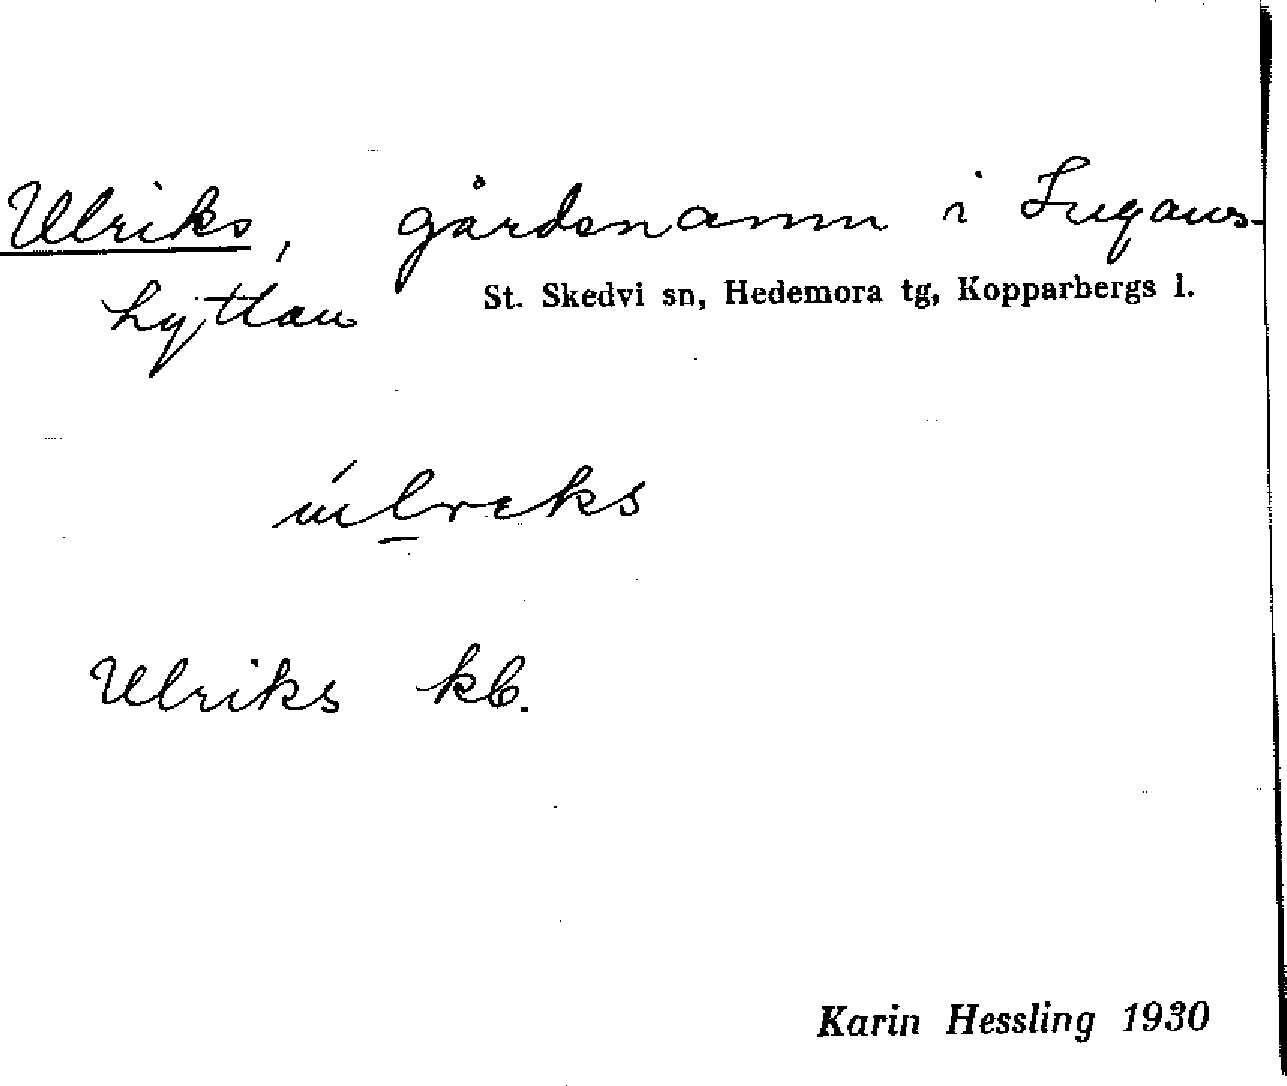 Ulriks, gårdsnamn i Ingvans-
hyttan
St. Skedvi sn, Hedemora tg, Kopparbergs l.
Ulriks kb.
Karin Hessling 1930